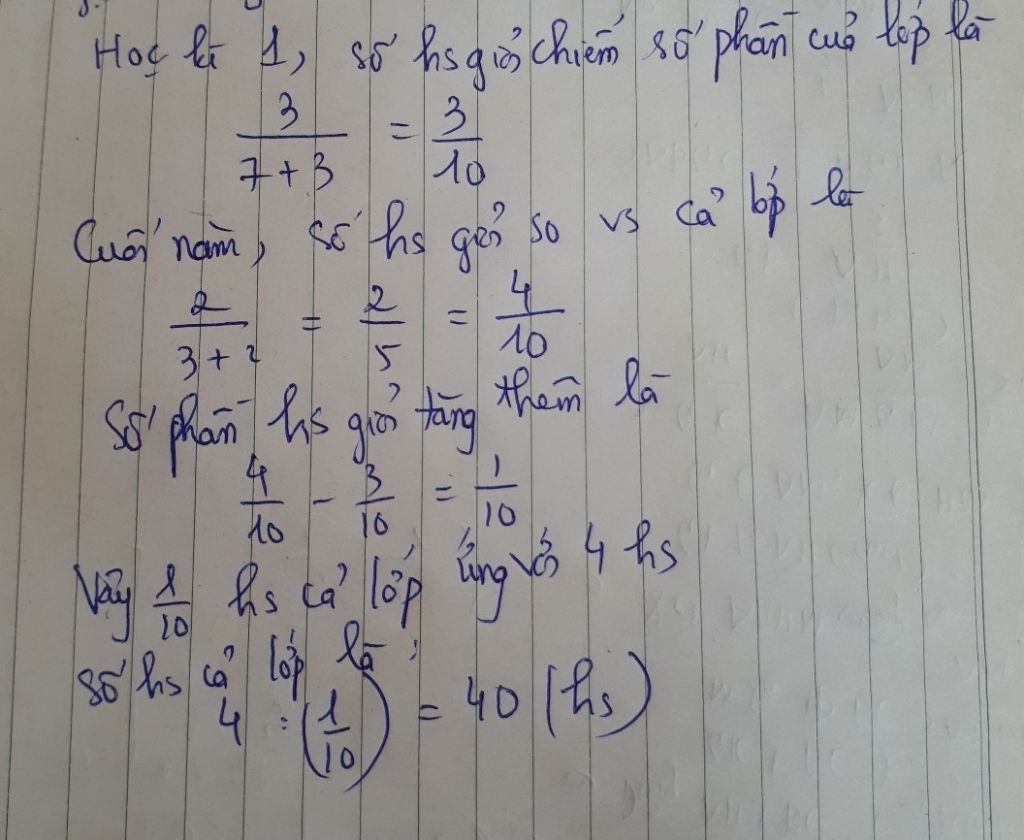 Học kì 1, số hs giỏi chiếm số phần của lớp là
3/(7+3) = 3/10
Cuối năm, số hs giỏi so vs cả lớp là
2/(3+2) = 2/5 = 4/10
Số phần hs giỏi tăng thêm là
4/10 - 3/10 = 1/10
Vậy 1/10 hs cả lớp ứng với 4 hs
số hs cả lớp là:
4 : (1/10) = 40 (hs)